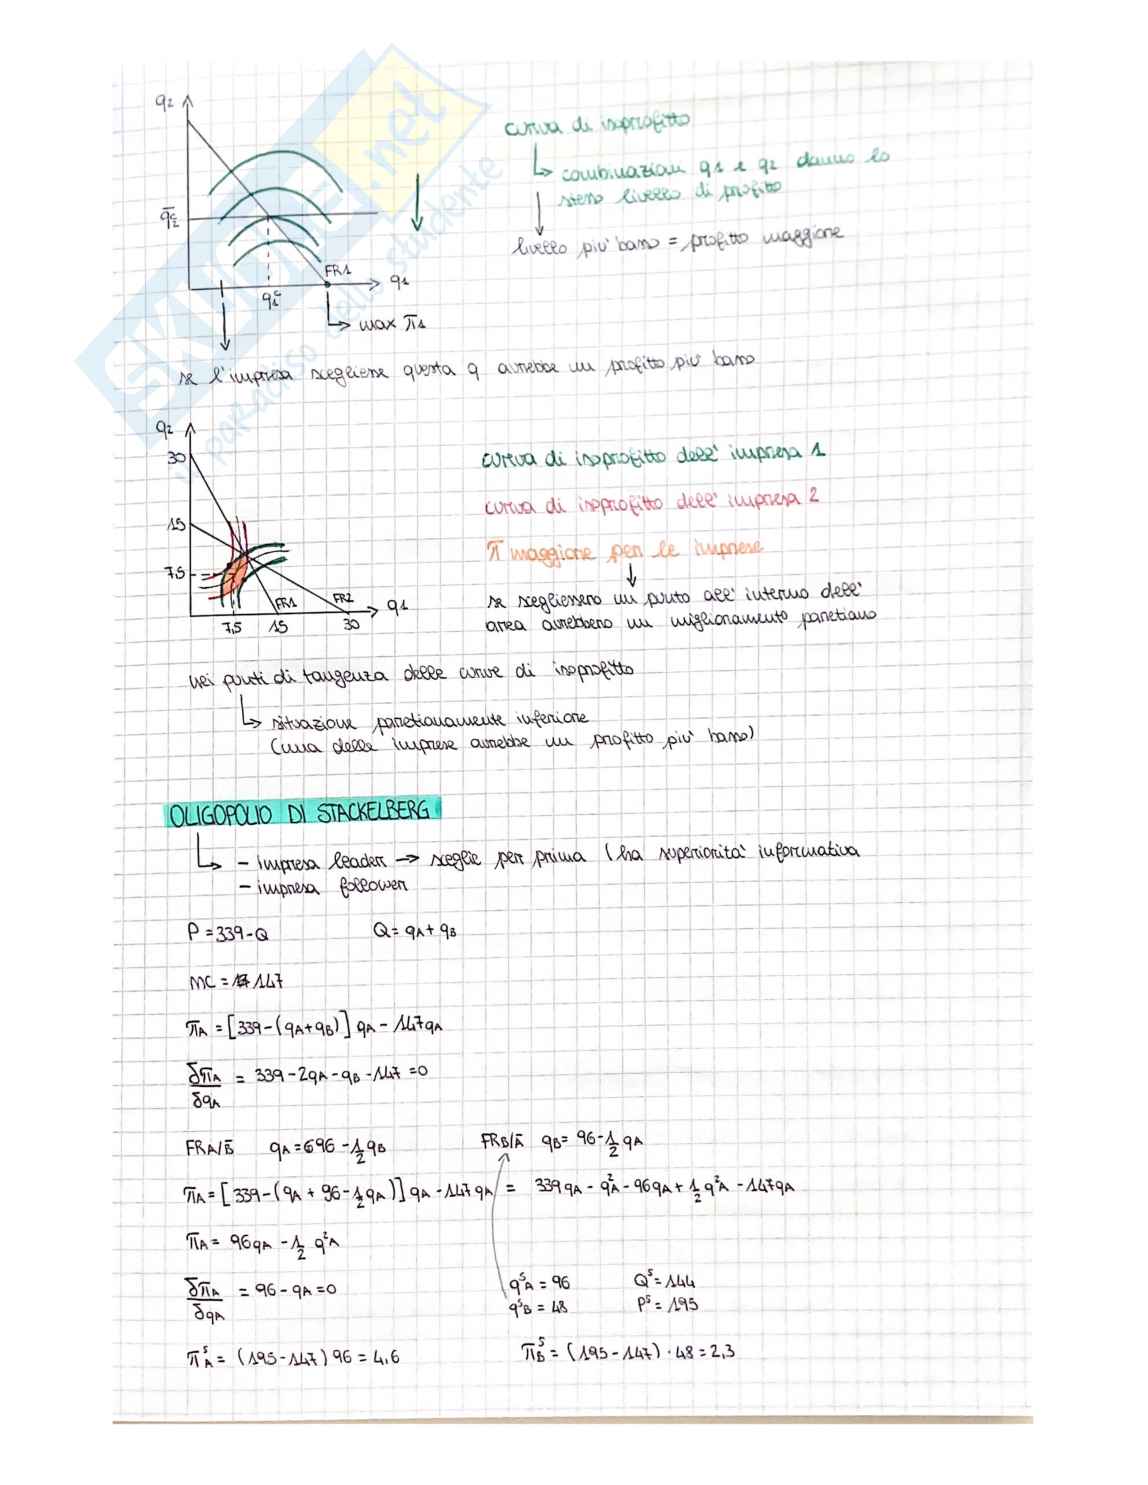 SKUOLA.net
il paradiso dello studente
q2
q̄2ᶜ
q1ᶜ
FR1
q1
max π1
curva di isoprofitto
combinazioni q1 e q2 danno lo
stesso livello di profitto
livello più basso = profitto maggiore
se l'impresa scegliesse questa q avrebbe un profitto più basso
q2
30
15
7,5
FR1
FR2
q1
7,5 15 30
curva di isoprofitto dell' impresa 1
curva di isoprofitto dell' impresa 2
π maggiore per le imprese
se scegliessero un punto all' interno dell'
area avrebbero un miglioramento paretiano
nei punti di tangenza delle curve di isoprofitto
situazione paretianamente inferiore
(una delle imprese avrebbe un profitto più basso)
OLIGOPOLIO DI STACKELBERG
- impresa leader → sceglie per prima (ha superiorità informativa
- impresa follower
P = 339-Q Q = qA + qB
MC = 147
πA = [339-(qA+qB)] qA - 147qA
δπA/δqA = 339-2qA-qB-147=0
FRA/B̄ qA = 696 - 1/2 qB FRB/Ā qB = 96 - 1/2 qA
πA = [339-(qA + 96 - 1/2 qA)] qA - 147qA = 339qA - q²A - 96qA + 1/2 q²A - 147qA
πA = 96qA - 1/2 q²A
δπA/δqA = 96 - qA = 0
qˢA = 96 Qˢ = 144
qˢB = 48 Pˢ = 195
πˢA = (195-147) 96 = 4,6 πˢB = (195-147) · 48 = 2,3